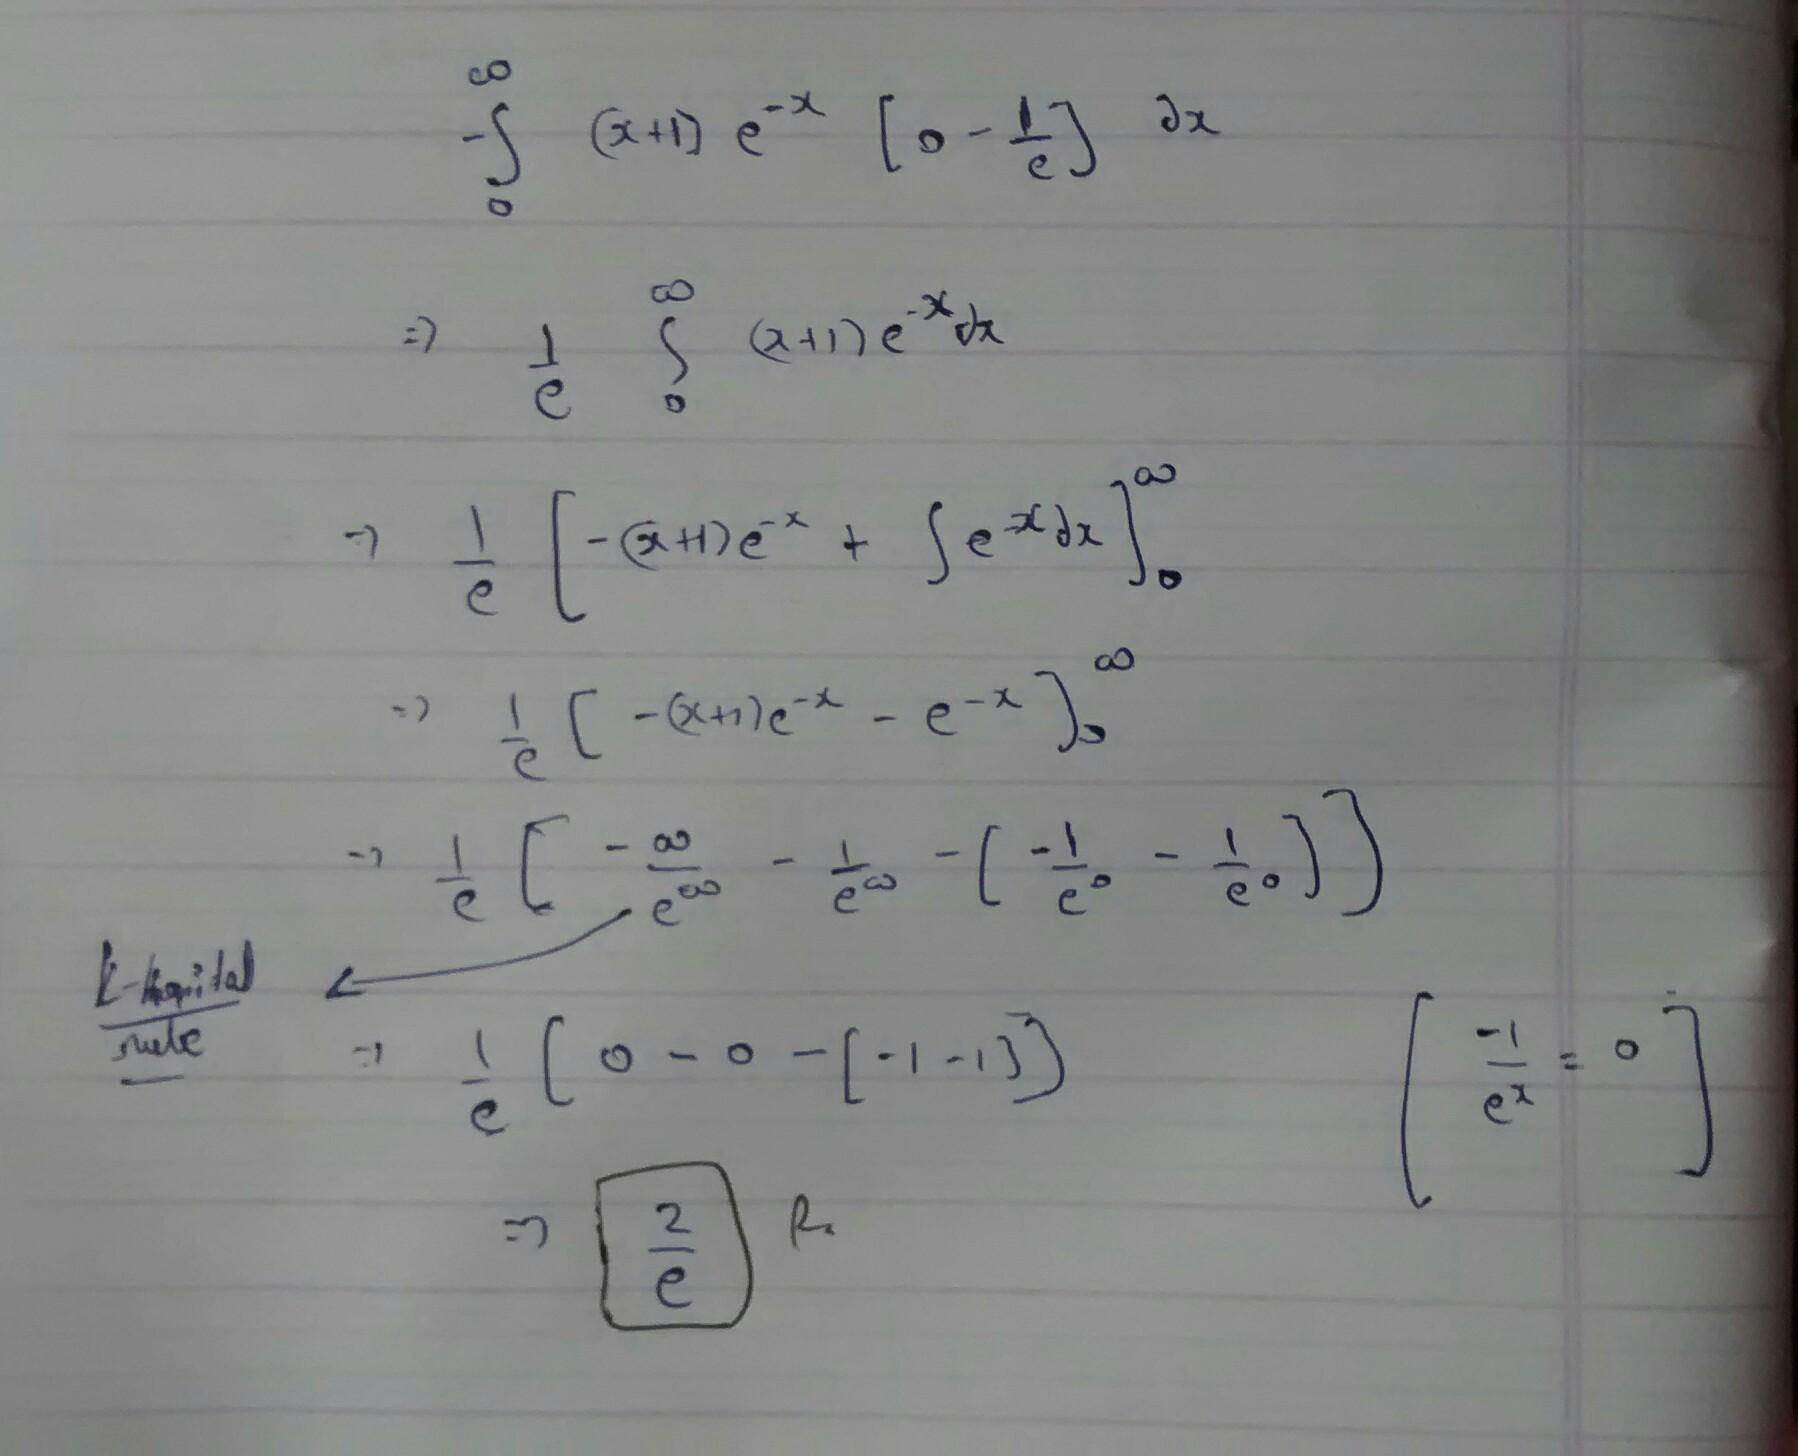 -∫₀^∞ (x+1) e^{-x} [0 - 1/e] dx
⇒ 1/e ∫₀^∞ (x+1) e^{-x} dx
⇒ 1/e [-(x+1)e^{-x} + ∫ e^{-x} dx]₀^∞
⇒ 1/e [-(x+1)e^{-x} - e^{-x}]₀^∞
⇒ 1/e [-∞/e^∞ - 1/e^∞ - (-1/e^0 - 1/e^0)]
rule
⇒ 1/e [0 - 0 - [-1 - 1]]
[-1/e^x = 0]
⇒ 2/e